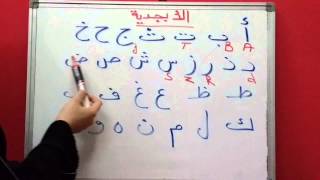 الأبجدية
أ ب ت ث ج ح خ
A B T j
د ذ ر ز س ش ص ض
d R Z S
ط ظ ع غ ف
ك ل م ن ه و